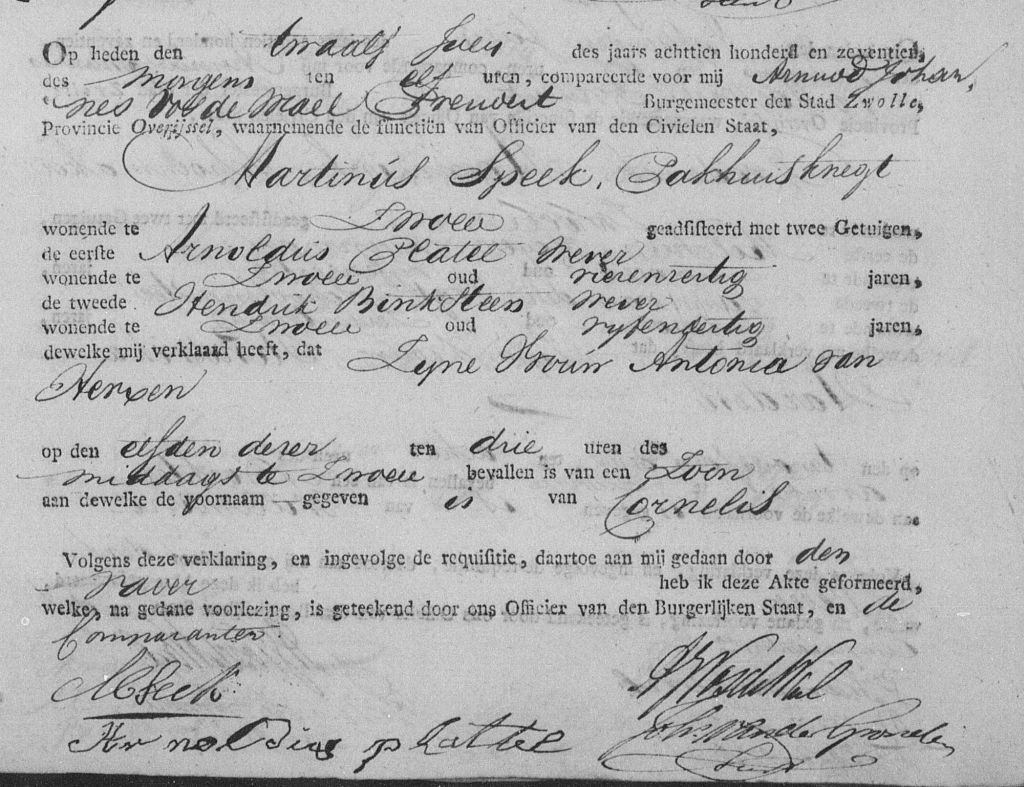 Op heden den twaalf Juni des jaars achttien honderd en zeventien,
des morgens ten elf uren, compareerde voor mij Arnoud Johan,
nes Vos de Wael Burgemeester der Stad Zwolle,
Provincie Overijssel, waarnemende de functiën van Officier van den Civielen Staat,
Martinus Speek, Pakhuisknegt
wonende te Zwolle geadsisteerd met twee Getuigen,
de eerste Arnoldus Platel Wever
wonende te Zwolle oud vierenzertig jaren,
de tweede Hendrik Binksteen Wever
wonende te Zwolle oud vyfenzertig jaren,
dewelke mij verklaard heeft, dat Zyne Vrouw Antonia van
Herxen
op den elfden dezer ten drie uren des
middags te Zwolle bevallen is van een Zoon
aan dewelke de voornaam gegeven is van Cornelis.
Volgens deze verklaring, en ingevolge de requisitie, daartoe aan mij gedaan door den
Vader heb ik deze Akte geformeerd,
welke, na gedane voorlezing, is geteekend door ons Officier van den Burgerlijken Staat, en de
Comparanten.
MSpeek AJVosdeWael
Arnoldus plattee